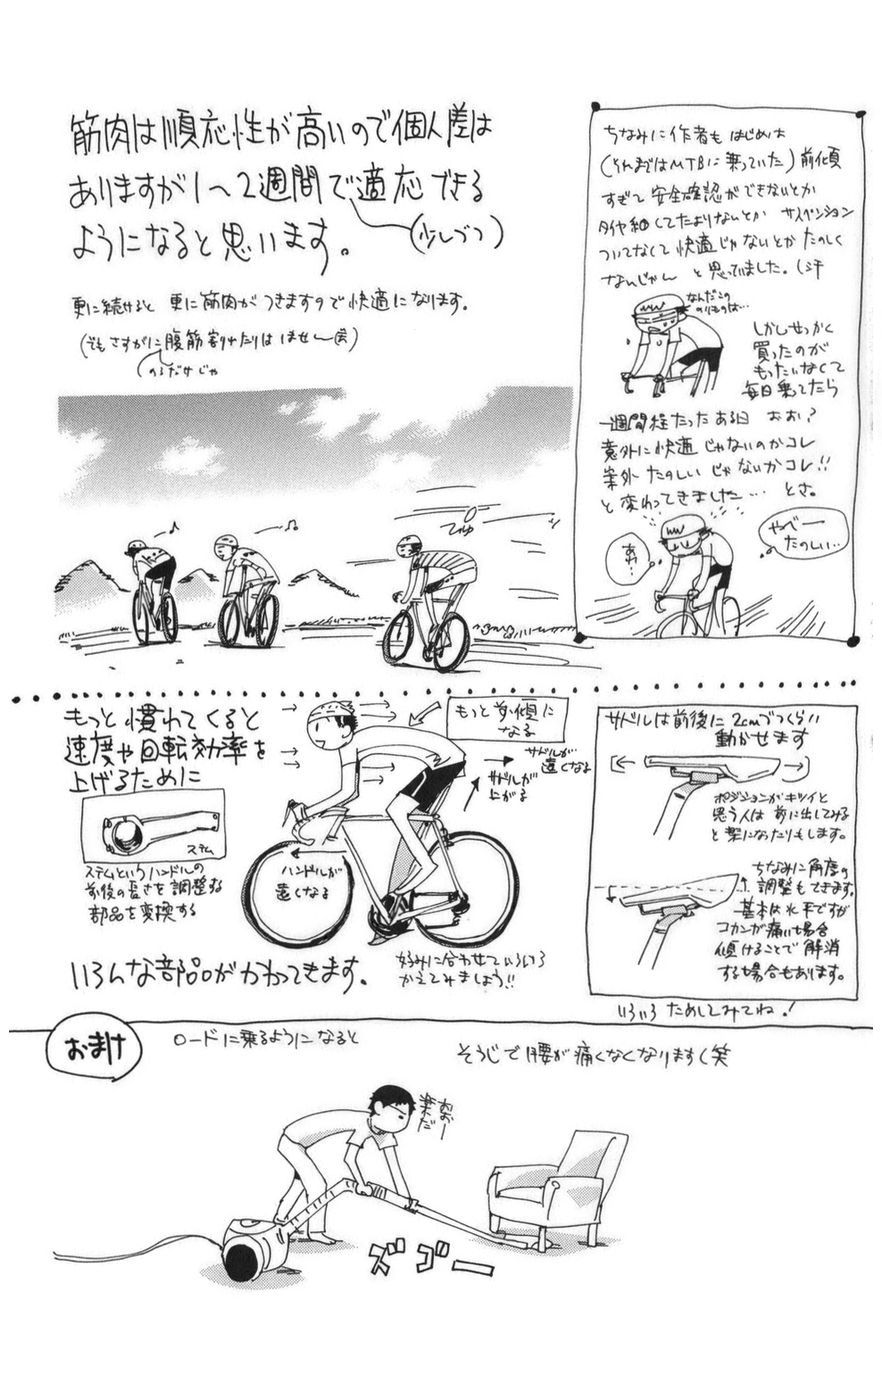 筋肉は順応性が高いので個人差は
ありますが1〜2週間で適応できる
ようになると思います。
(少しづつ)
更に続けると 更に筋肉がつきますので快適になります。
(でもさすがに腹筋割れたりはしませーん(笑)
ちなみに作者も はじめは
(それまではMTBに乗っていた)前傾
すぎて安全確認ができないとか
タイヤ細くてたよりないとか サスペンション
ついてなくて快適じゃないとか たのしく
ないじゃん と思っていました。(汗
なんだこの
のりものは…
しかしせっかく
買ったのが
もったいなくて
毎日乗ってたら
一週間程たったある日 おお?
意外に快適じゃないのかコレ
案外たのしいじゃないかコレ!!
と変わってきました… とさ。
やべー
たのしい…
もっと慣れてくると
速度や回転効率を
上げるために
ステム
ステムというハンドルの
前後の長さを調整する
部品を変換する
いろんな部品がかわってきます。
もっと前傾に
なる
サドルが
遠くなる
サドルが
上がる
ハンドルが
遠くなる
好みに合わせていろいろ
かえてみましょう!!
サドルは前後に2cmづつくらい
動かせます
ポジションがキツイと
思う人は前に出してみる
と楽になったりもします。
ちなみに角度の
調整もできます。
基本は水平ですが
コカンが痛い場合
傾けることで解消
する場合もあります。
いろいろためしてみてね!
おまけ
ロードに乗るようになると
そうじで腰が痛くなくなります(笑
おおー
楽だ
ズゴー